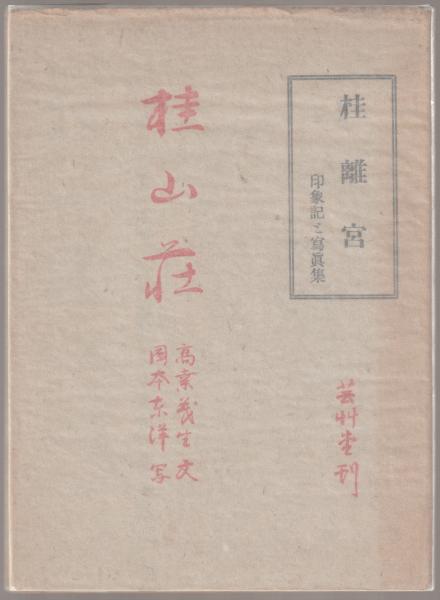 桂離宮
印象記と寫眞集
芸艸堂刊
桂山荘
高桒義生文
岡本東洋写